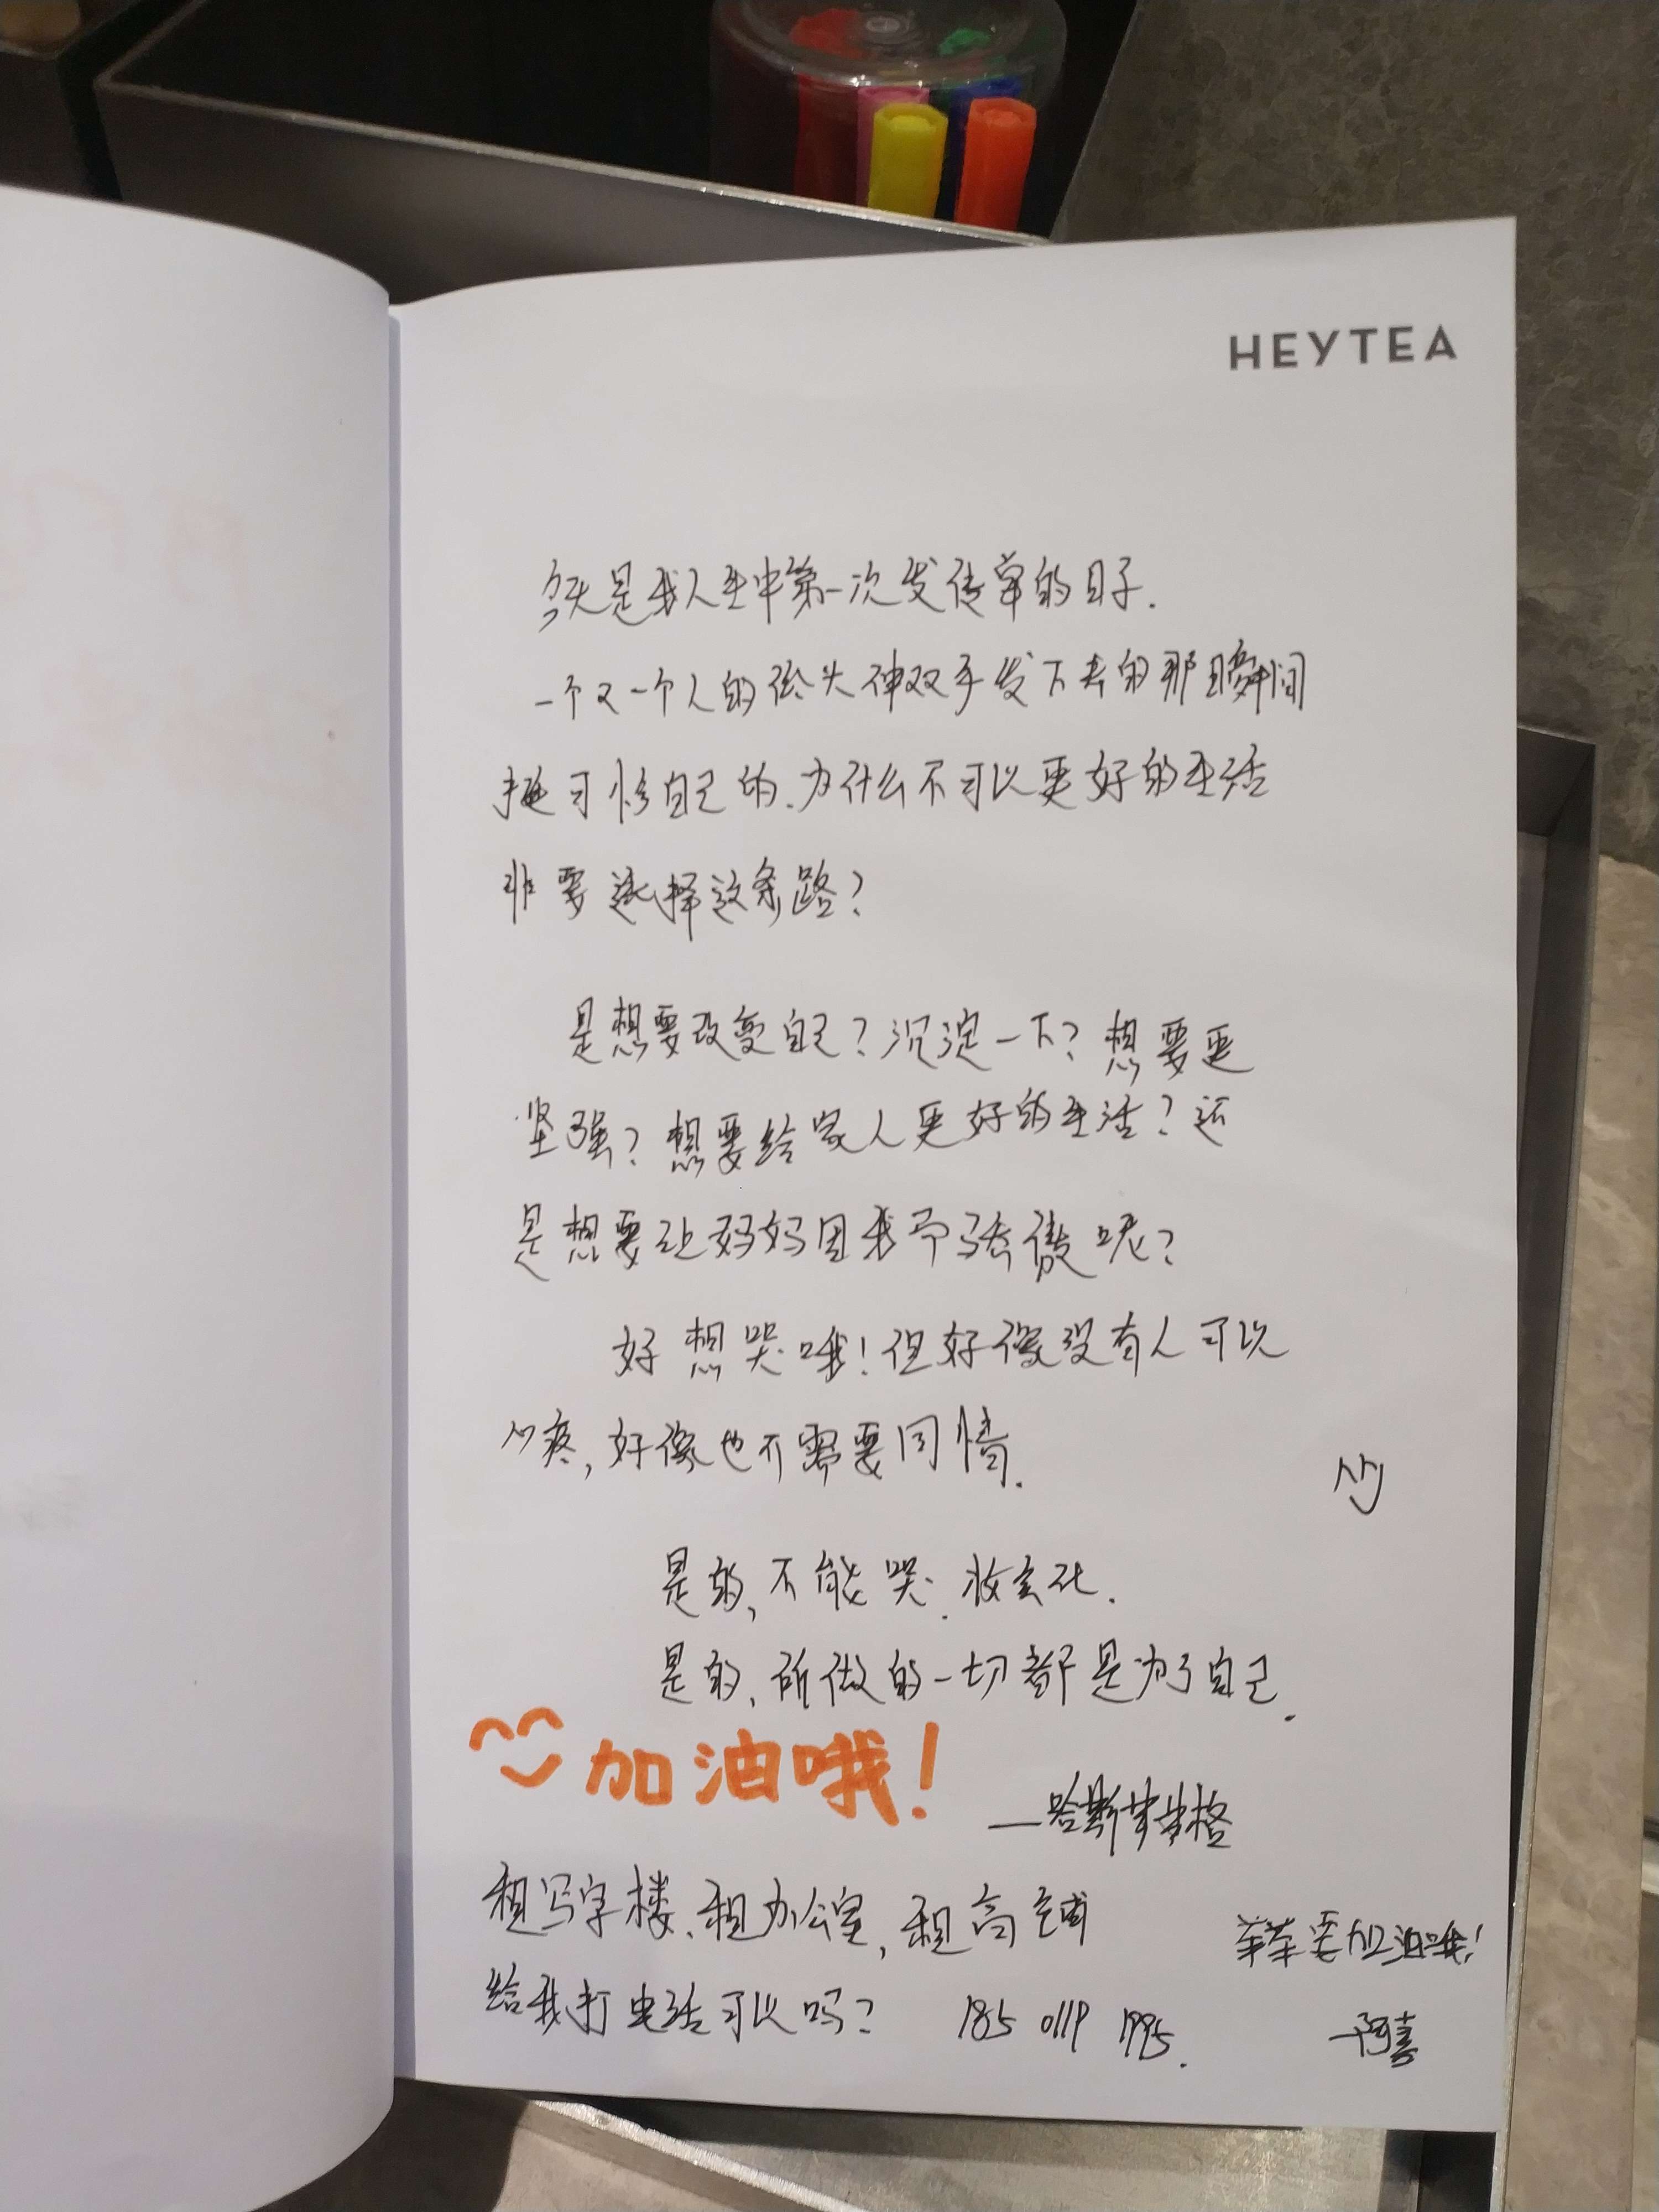 HEYTEA
今天是我人生中第一次发传单的日子.
一个又一个人的低头伸双手发下去的那瞬间
挺可怜自己的.为什么不可以更好的生活
非要选择这条路?
是想要改变自己?沉淀一下?想要更
坚强?想要给家人更好的生活?还
是想要让妈妈因我而骄傲呢?
好想哭哦!但好像没有人可以
心疼,好像也不需要同情.
是的,不能哭.妆会花.
是的,所做的一切都是为了自己.
加油哦!
租写字楼、租办公室,租商铺
给我打电话可以吗? 185 0119 1995.
要加油哦!
—阿喜